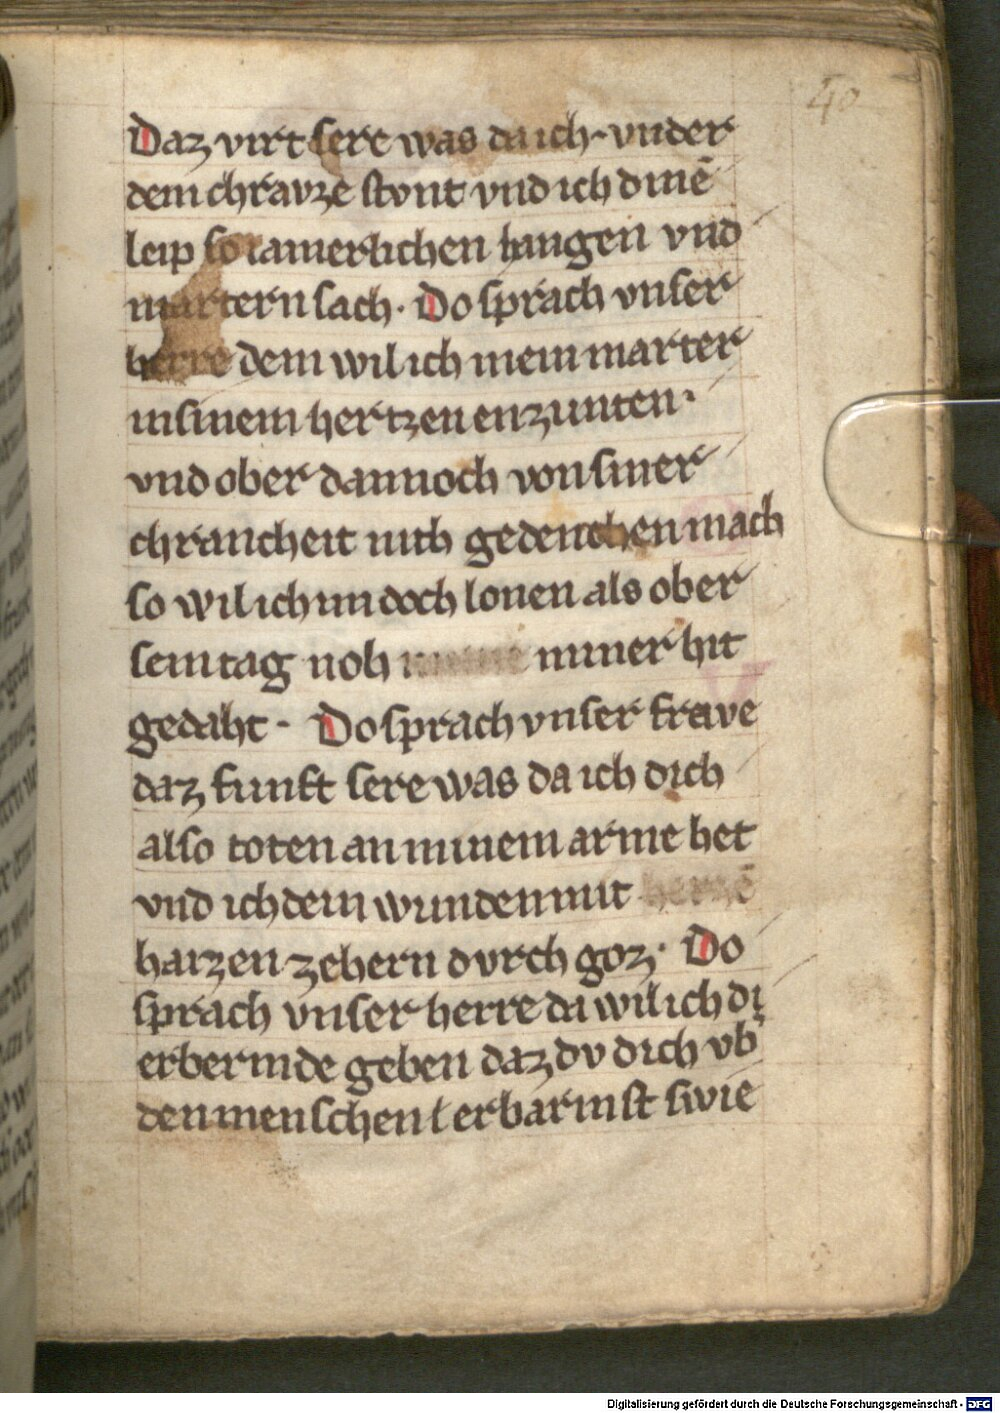 40
Daz virt sere was da ich · vnder
dem chravze stvnt vnd ich dinē
leip so iamerlichen hangen vnd
martern sach · Do sprach vnser
herre dem wil ich mein marter
in sinem hertzen enzunten ·
vnd ober dannoch von siner
chrancheit nith gedenchen mach
so wil ich im doch lonen als ober
sein tag noh nimer hit
gedaht - Do sprach vnser frawe
daz funft sere was da ich dich
also toten an minem arme het
vnd ich dein wunden mit
haizen zehern dvrch goz · Do
sprach vnser herre da wil ich di
erbermde geben daz dv dich vb
den menschen erbarmst swie
Digitalisierung gefördert durch die Deutsche Forschungsgemeinschaft - DFG